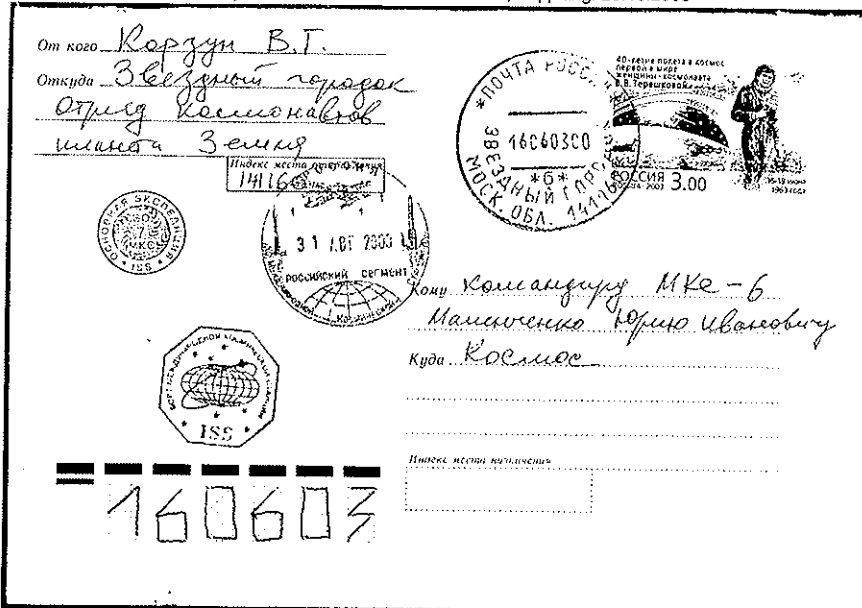 От кого Корзун В.Г.
Откуда Звездный городок
Отряд космонавтов
планета Земля
Индекс места
14116
ОСНОВНАЯ ЭКСПЕДИЦИЯ
7
МКС
ISS
31 АВГ 2003
РОССИЙСКИЙ СЕГМЕНТ
*ПОЧТА РОССИИ
16060300
*б*
ЗВЕЗДНЫЙ ГОРОДОК
МОСК. ОБЛ. 14116
40-летие полета в космос
первой в мире
женщины-космонавта
В.В.Терешковой
РОССИЯ 3.00
ROSSIA 2003
16-19 июня
1963 года
Кому Командиру МКС-6
Маленченко Юрию Ивановичу
Куда Космос
ISS
Индекс места назначения
160603